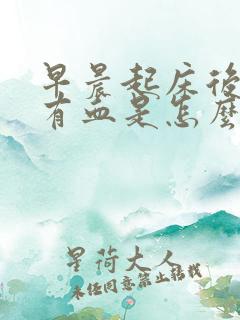 早晨起床後
有血是怎麼
星荷大人
未经同意禁止转载